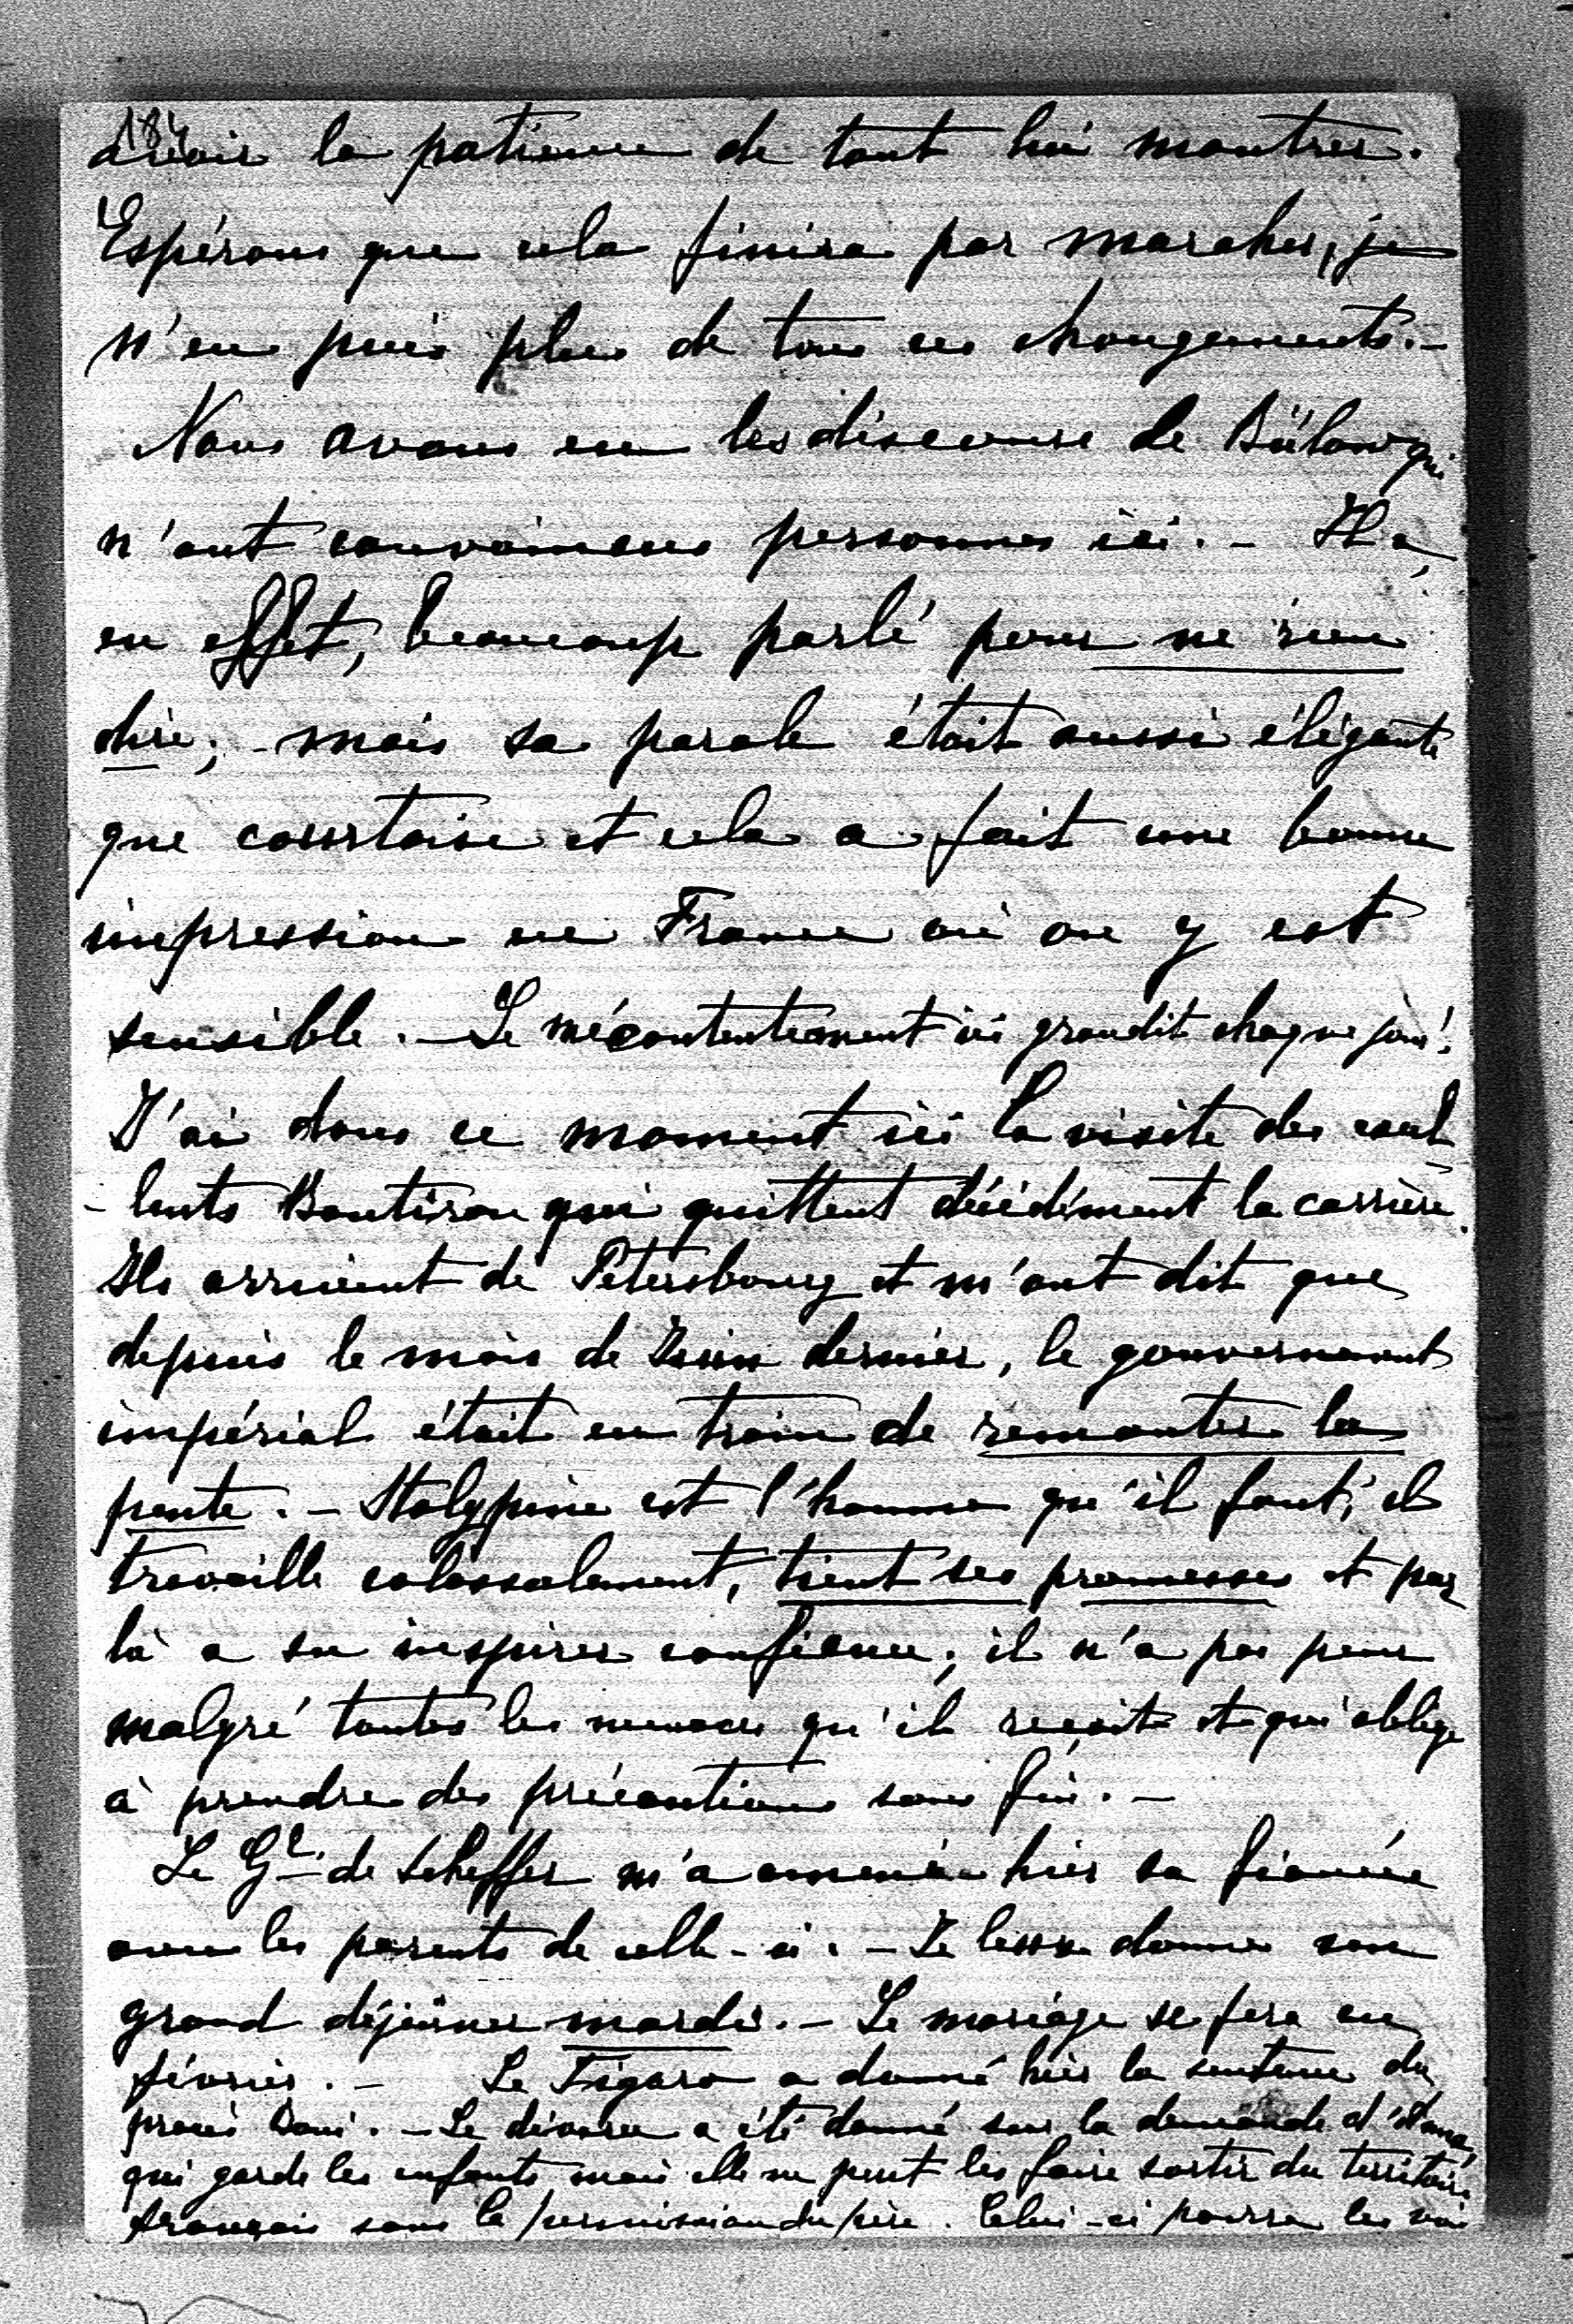 184
d'avoir la patience de tout lui montrer.
Espérons que cela finira par marcher, je
n'en puis plus de tous ces changements. -
Nous avons eu les discours de Bülow qui
n'ont convaincus personnes ici. - Il a,
en effet, beaucoup parlé pour ne rien
dire; - mais sa parole était aussi élégante
que courtoise et cela a fait une bonne
impression en France où on y est
sensible. - Le mécontentement ici grandit chaque jour!
J'ai dans ce moment ici la visite des excel
- lents Boutiron qui quittent décidément la carrière.
Ils arrivent de Pétersbourg et m'ont dit que
depuis le mois de Juin dernier, le gouvernement
impérial était en train de remonter la
pente. - Stolypine est l'homme qu'il faut; il
travaille colossalement, tient ses promesses et par
là a su inspirer confiance; il n'a pas peur
malgré toutes les menaces qu'il reçoit et qui oblige
à prendre des précautions sans fin. -
Le Gal de Scheffer m'a amenée hier sa fiancée
avec les parents de celle-ci. - Je leur donne un
grand déjeûner mardi. - Le mariage se fera en
février. - Le Figaro a donné hier la sentence du
procès Boni. - Le divorce a été donné sur la demande d'Anna,
qui garde les enfants mais elle ne peut les faire sortir du territoire
français sans la permission du père. Celui-ci pourra les voir